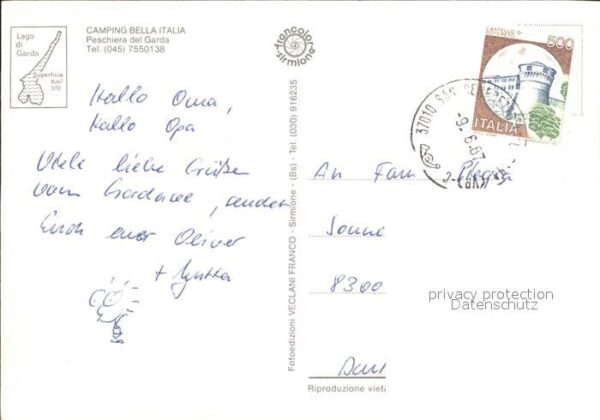 Lago
di
Garda
Superficie
Km²
370
CAMPING BELLA ITALIA
Peschiera del Garda
Tel. (045) 7550138
francolor
sirmione
CASTELLO DI
ROVERETO
500
ITALIA
37010 SAN BENEDETTO
-9.6.87
Hallo Oma,
Hallo Opa
Viele liebe Grüße
vom Gardasee, senden
Euch euer Oliver
+ Jutta
Fotoedizioni VECLANI FRANCO - Sirmione - (Bs) - Tel. (030) 916235
An Fam
Sonne
8300
privacy protection
Datenschutz
Riproduzione vieta